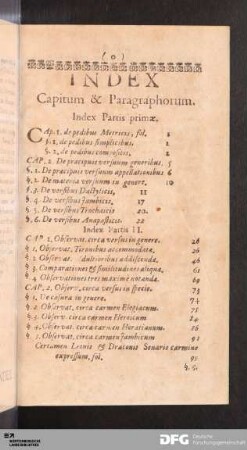 (0)
INDEX
Capitum & Paragraphorum.
Index Partis primæ.
CAp. I. de pedibus Metricis, fol. 1
§. 1. de pedibus simplicibus. 1
§. 2. de pedibus compositis. 2
CAP. 2. De præcipuis versuum generibus. 5
§. 1. De præcipuis versuum appellationibus 6
§. 2. De materia versuum in genere. 10
§. 3. De versibus Dactylicis, 11
§. 4. De versibus Jambicis, 17
§. 5. De versibus Trochaicis 20
§. 6. De versibus Anapæsticis. 22
Index Partis II.
CAP. 1. Observat. circa versus in genere. 26
§. 1. Observat. Tironibus accommodatæ. 26
§. 2. Observat. adultioribus addiscendæ. 46
§. 3. Comparationes & similitudines aliqua, 61
§. 4. Observationes tres maximè notandæ. 69
CAP. 2. Observ. circa versus in specie. 73
§. 1. De cæsura in genere. 74
§. 2. Observat. circa carmen Elegiacum. 75
§. 3. Observ. circa carmen Heroicum
§. 4. Observat. circa carmen Horatianum.
§. 5. Observat. circa carmen Jambicum 91
Certamen Leonis & Draconis Senario carmine
expressum, fol.
DFG Deutsche
Forschungsgemeinschaft